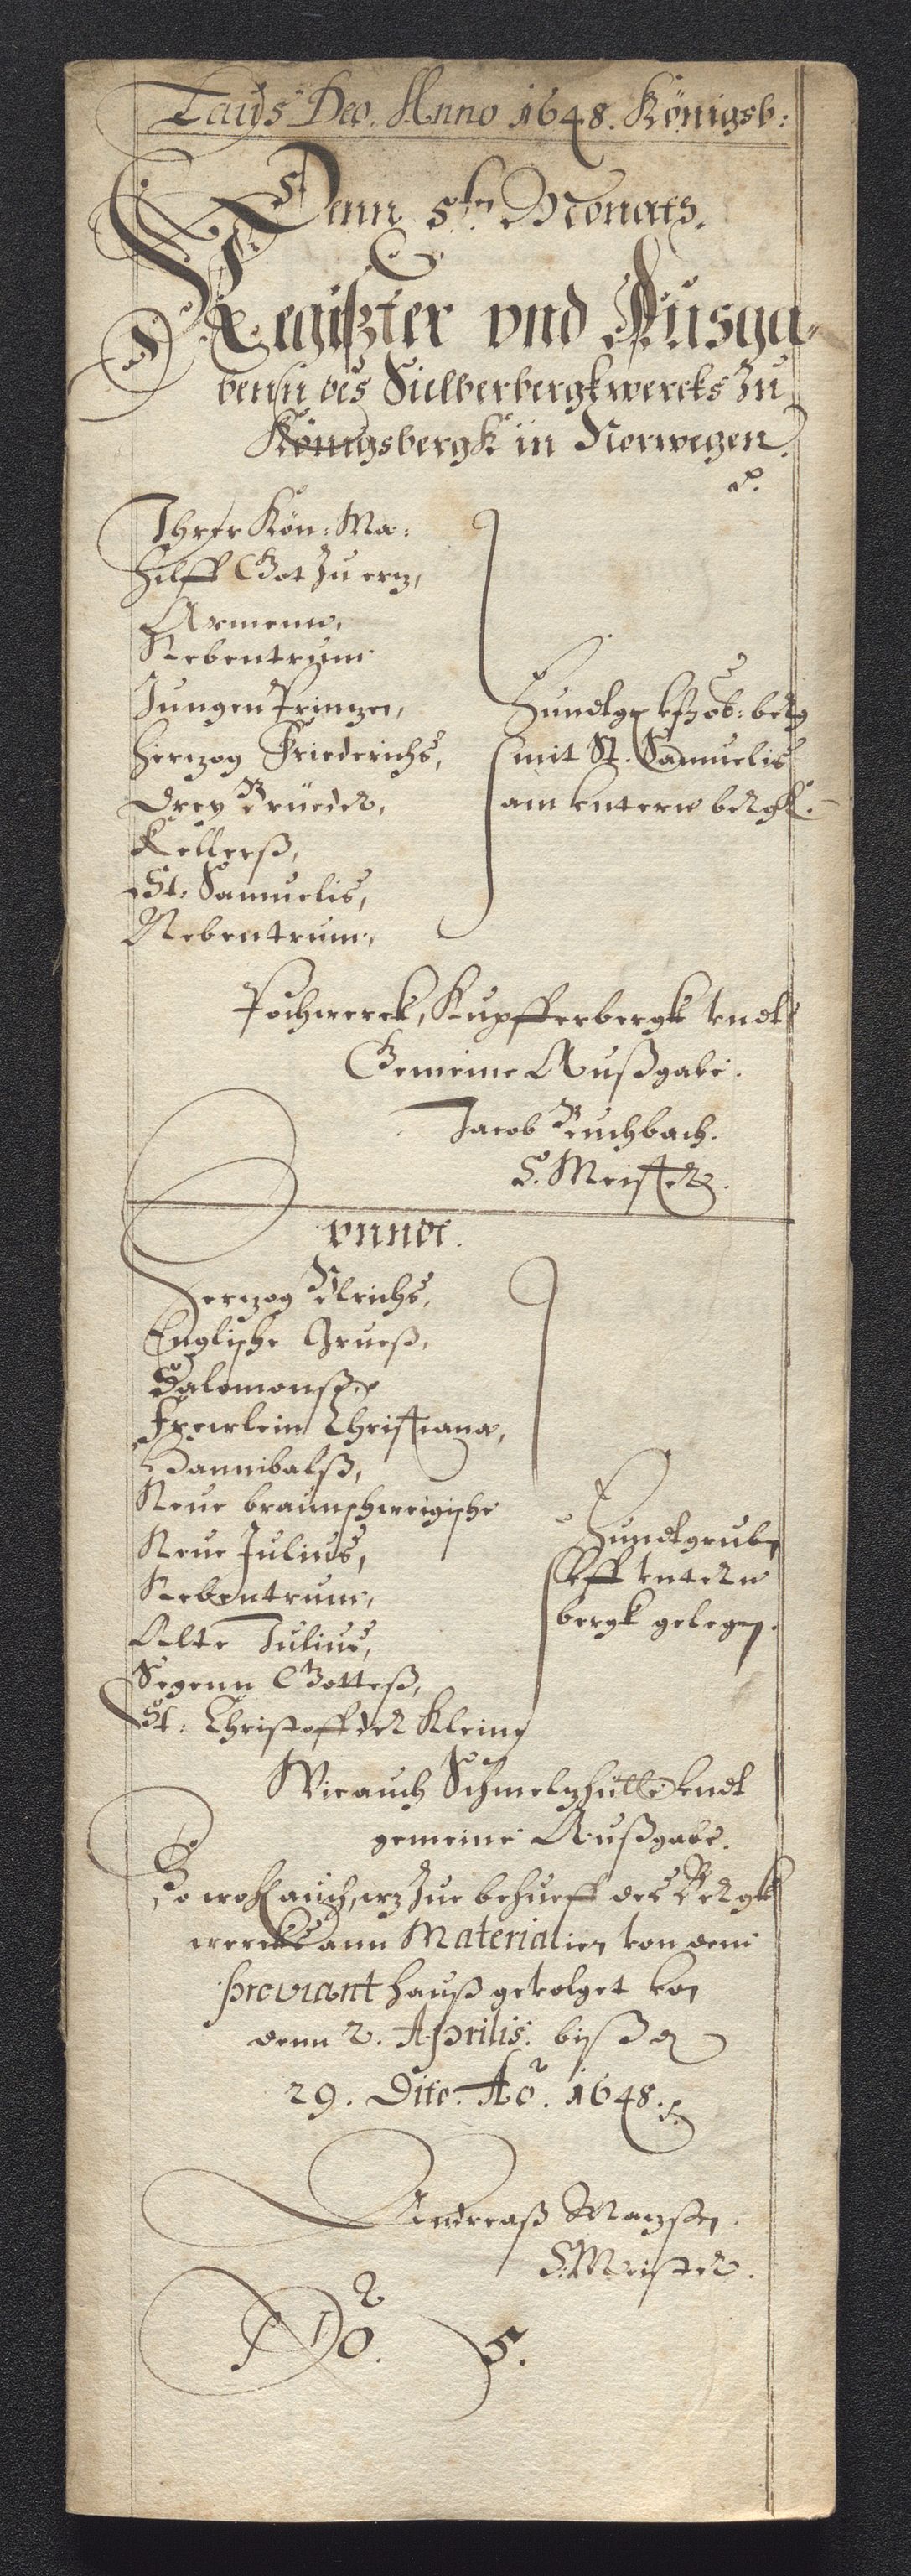 Laus Deo. Anno 1648. Königsb:
Denn 5tn Monats.
Register vnd Ausga-
benn des Sielberbergkwercks zu
Königsbergk in Norwegen.
Ihrer Kön: Ma:
Hilff Got zu erz,
Armenn,
Nebentrum
Jungen Printzen,
Hertzog Friederichs,
Drey Brüeder,
Kellerß,
St. Samuelis,
Nebentrum,
Fundtgr vfm ob: berg
mit St. Samuelis
am vnternn bergk.
Pochwerck, Kupfferbergk vndt
Gemeine Außgabe.
Jacob Buchbach.
S. Meister.
vnndt.
Hertzog Ulrichs,
Englische Grueß,
Salomonß,
Frewlein Christiana,
Hannibalß,
Neue braunschweigische
Neue Julius,
Nebentrum,
Alte Julius,
Segenn Gotteß,
St: Christoff der Kleine
Fundtgrubn
vff vntern
bergk gelegen.
Wie auch Schmeltzhütte vndt
gemeine Außgabe.
So wohl auch, wz zue behueff des Bergk
wercks ann Materialien von dem
proviant hauß gevolget von
denn 2. Aprilis. biß dn
29. Dito. Ao. 1648.
Andreaß
S. Meister.
No. 5.